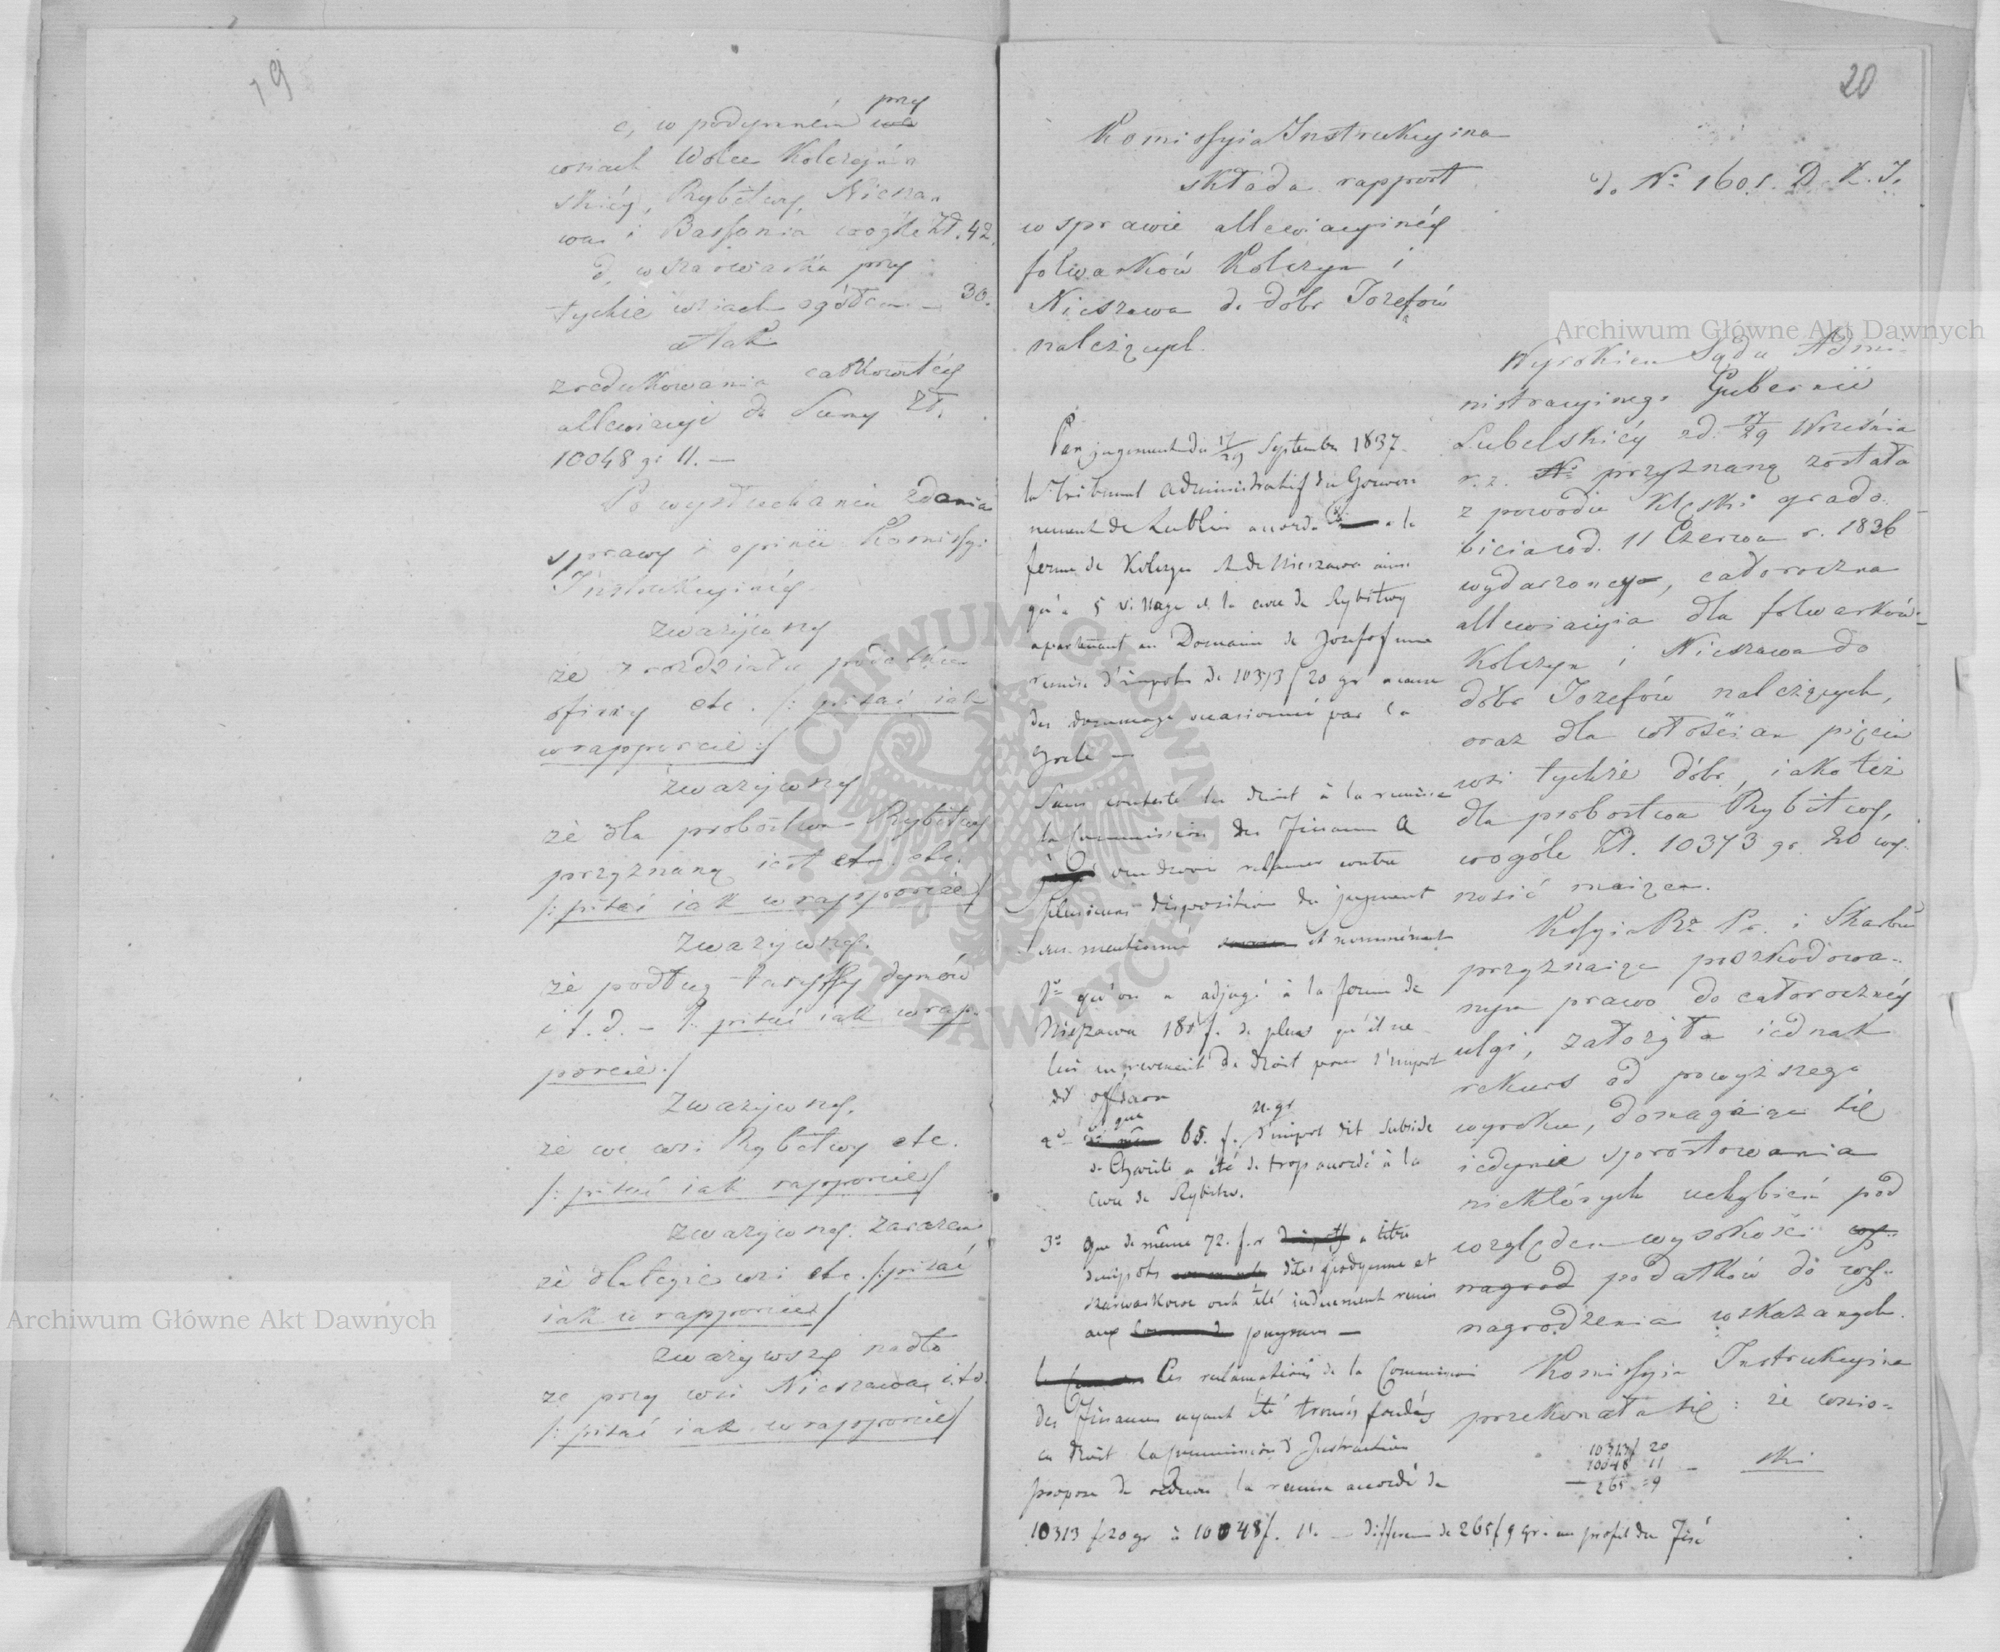 19
c, w podymném przy
wsiach Wolce Kolczyń
skiéy, Rybitwy, Niesza
wa i Bassonia wogóle Zł. 42.
d, w szarwarku przy
tychże wsiach ogółem — 30.
a tak
zredukowania całkowitéy
allewiacyi do Summy Zł.
10048 gr 11. —
Po wysłuchaniu zdania
sprawy i opinii Komissyi
Instrukcyinéy
zważywszy
że z rozdziału podatku
ofiary etc. /: pisać iak
w rapporcie :/
zważywszy
że dla probostwa Rybitwy
przyznaną iest etc. etc.
/: pisać iak w rapporcie /
zważywszy.
że podług taryffy dymów
i t. d. — /: pisać iak w rap-
porcie :/
Zważywszy,
że we wsi Rybitwy etc.
/: pisać iak rapporcie /
zważywszy zarazem
że dla tegie wsi etc. /: pisać
iak w rapporcie /
zważywszy nadto
że przy wsi Nieszawa i.t.d.
/: pisać iak w rapporcie /
20
Komissyia Instrukcyina
składa rapport
w sprawie allewiacyinéy
folwarków Kolczyn i
Nieszawa do dóbr Jozefów
należących.
do No 1601. D. K. I.
Par jugement du 17/29 Septembre 1837
le Tribunal administratif du Gouver
nement de Lublin accorda à la
ferme de Kolczyn et de Nieszawa ainsi
qu'a 5 village et la cure de Rybitwy
apartenant au Domaine de Jozefof une
remise d'impots de 10313 f 20 gr a cause
des dommage occasionné par la
grele —
Sans contester le droit à la remise
la Commission des Finances a
cru devoir reclamer contre
plusieurs disposition du jugement
sus mentionné et nommément
1o qu'on a adjugé à la ferme de
Nieszawa 181 f. de plus qu'il ne
lui en revenait de droit pour l'impot
dit ofiara
2o que 65. f. 21. gr d'impot dit subside
de Charité a été de trop accordé à la
cure de Rybitw.
3o que de même 72. f. a titre
d'impots dites podymne et
szarwarkowe ont été indument remis
aux paysans —
Ces reclamations de la Commission
des Finances ayant été trouvés fondés
en droit la commission d'Instruction
propose de réduire la remise accordé de
10313 f 20 gr à 10048 f. 11. — difference de 265 f 9 gr. au profit du Fisc
Wyrokiem Sądu Admi-
nistracyinego Gubernii
Lubelskiéy z d. 17/29 Września
r. z. przyznaną została
z powodu klęski grado-
bicia w d. 11 Czerwca r. 1836
wydarzoney, całoroczna
allewiacyia dla folwarków
Kolczyn i Nieszawa do
dóbr Jozefów należących,
oraz dla włościan pięciu
wsi tychże dóbr, iako też
dla probostwa Rybitwy,
wogóle Zł. 10373 gr. 20 wy-
nosić maiąca.
Kssyia Rz. Pr. i Skarbu
przyznaiąc poszkodowa-
nym prawo do całoroczney
ulgi, założyła iednak
rekurs od powyższego
wyroku, domagaiąc się
iedynie sprostowania
niektórych uchybień pod
względem wysokości wy-
nagrod podatków do wy-
nagrodzenia wskazanych.
Komissyia Instrukcyina
przekonała się: że wnio-
10313 f 20
10048 11
— 265 9
ski
Archiwum Główne Akt Dawnych
Archiwum Główne Akt Dawnych
ARCHIWUM GŁÓWNE AKT DAWNYCH